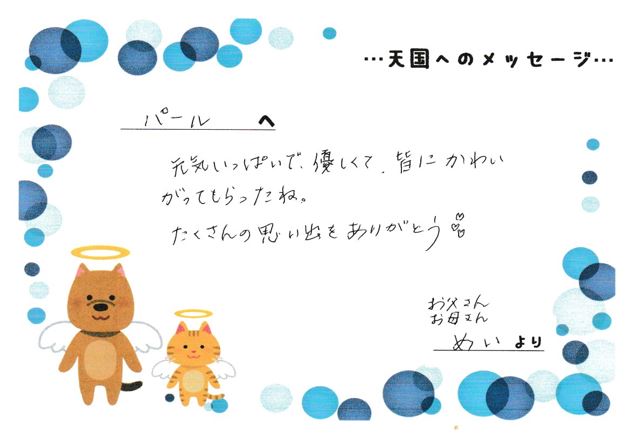 …天国へのメッセージ…
パール へ
元気いっぱいで、優しくて、皆にかわい
がってもらったね。
たくさんの思い出をありがとう
お父さん
お母さん
めい より